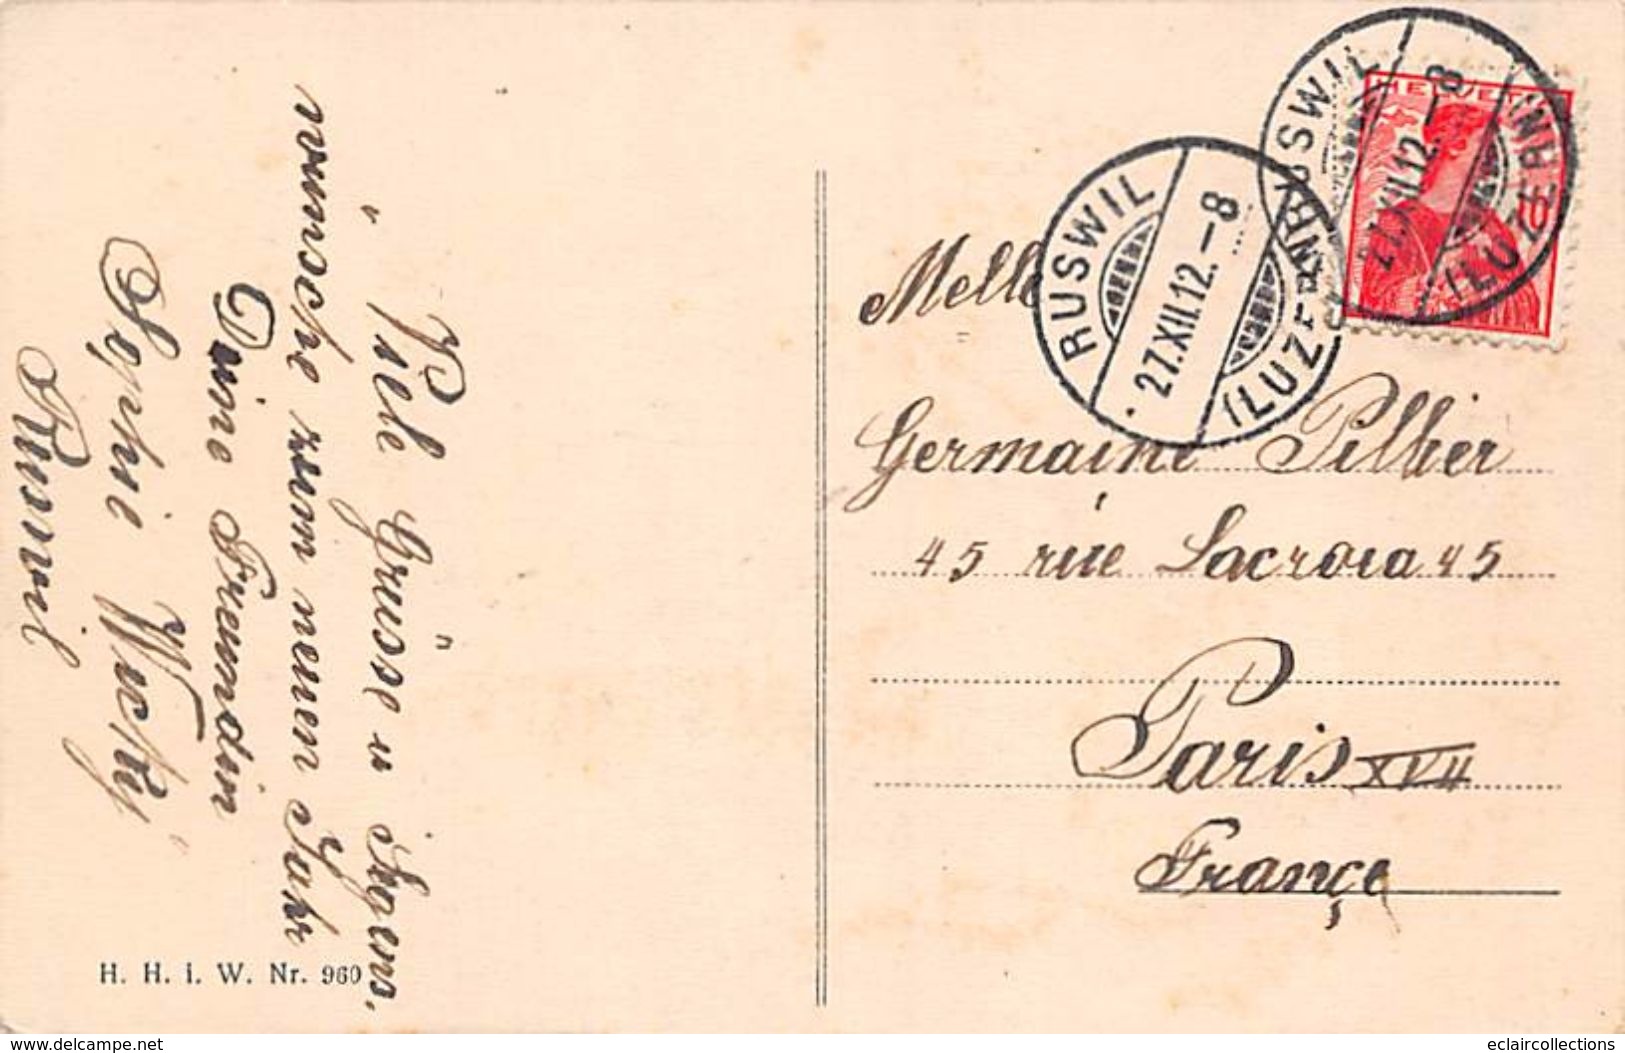 Viele Grüsse u Segens,
wünsche zum neuen Jahr
Deine Freundin
Sophie Wicky
Ruswil
H. H. i. W. Nr. 960
HELVETIA
RUSWIL
27.XII.12.-8
(LUZERN)
RUSWIL
27.XII.12.-8
(LUZERN)
Melle
Germaine Pillier
45 rue Lacroix 45
Paris XVII
Françe
www.delcampe.net
eclaircollections